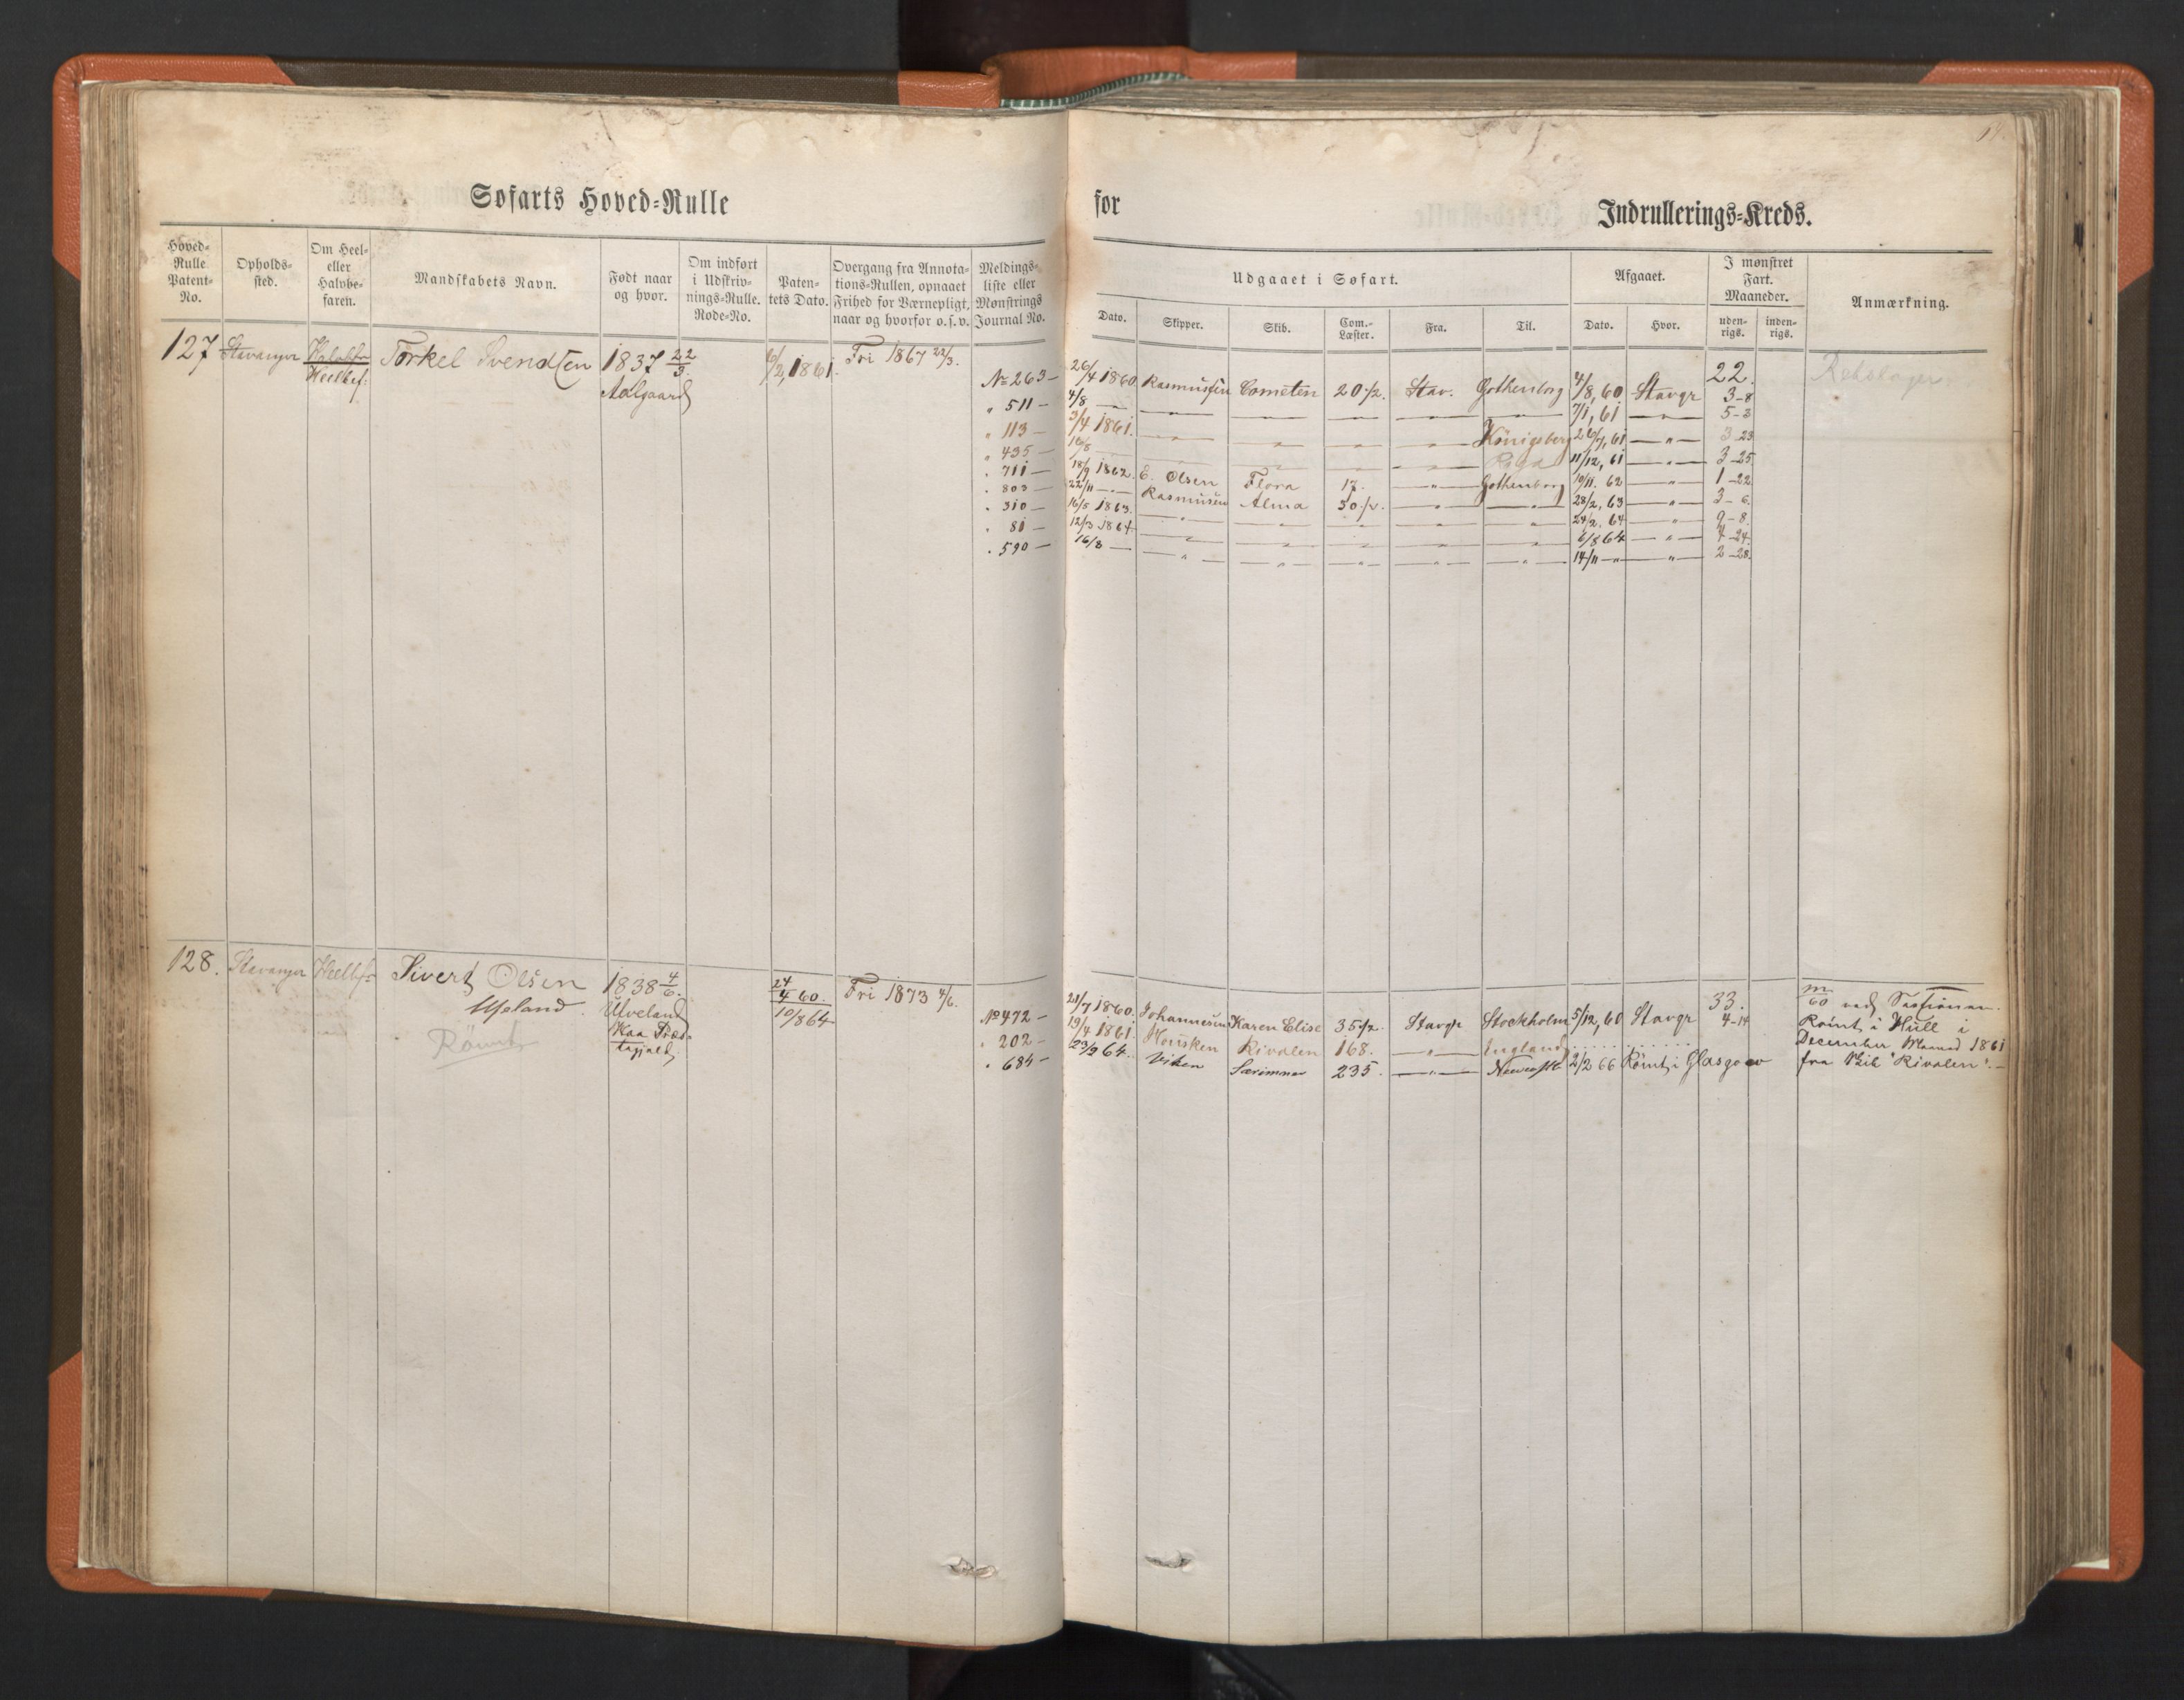 Søfarts Hoved-Rulle
for
Indrullerings-Kreds.
Hoved-Rulle Patent-No.
Opholds-sted.
Om Heel- eller Halvbe-faren.
Mandskabets Navn.
Født naar og hvor.
Om indført i Udskriv-nings-Rulle. Rode-No.
Paten-tets Dato.
Overgang fra Annota-tions-Rullen, opnaaet Frihed for Værnepligt, naar og hvorfor o.s.v.
Meldings-liste eller Mønstrings Journal No.
Udgaaet i Søfart.
Dato.
Skipper.
Skib.
Com.-Læster.
Fra.
Til.
Afgaaet.
Dato.
Hvor.
I mønstret Fart. Maaneder.
uden-rigs.
inden-rigs.
Anmærkning.
127 Stavanger Halvbf: Torkel Svendsen 1837 22/3 6/2, 1861. Fri 1867 22/3.
Heelbef: Aalgaard
22.
No 263 — 26/4 1860 Rasmussen Cometen 20 1/2. Stav. Gothenborg 4/8, 60 Stavgr 3-8
" 511 — 4/8 — — — — — — 7/1, 61 — 5-3
" 113 — 3/4 1861. — " " " Königsberg 26/7, 61 — " — 3-23
" 435 — 16/8 — — " " " Riga 11/12, 61 — " — 3-25
" 711 — 18/9 1862. E. Olsen Flora 17. — " — Gothenborg 10/11. 62 — " — 1-22
" 803 — 22/11 — " — Rasmusen Alma 50 1/2. — " — — " — 28/2, 63 — " — 3-6.
" 310 — 16/5 1863. — " — — " — — " — — " — — " — 24/2. 64 — " — 9-8.
" 81 — 12/3 1864 — " — — " — — " — — " — — " — 6/8 64 — " — 4-24.
" 590 — 16/8 — — " — — " — — " — — " — — " — 14/11 — " — — " — 2-28.
128. Stavanger Heelbf: Sivert Olsen 1838 4/6. 24/4 60. Fri 1873 4/6.
Upeland. Ulveland 10/8 64
Rømt Haa Præs-
tegjeld
33.
No 472 — 21/7 1860. Johannesen Karen Elise 35 1/2. Stavgr Stockholm 5/12, 60 Stavgr 4-14
" 202 — 19/4 1861. Housken Rivalen 168. — " — England
" 684 — 23/9 64. Viken Særimner 235. — " — Newcastle 2/2 66 Rømt i Glasgow
60 ved Sessionen.
Rømt i Hull i
December Maaned 1861
fra Skib "Rivalen". —